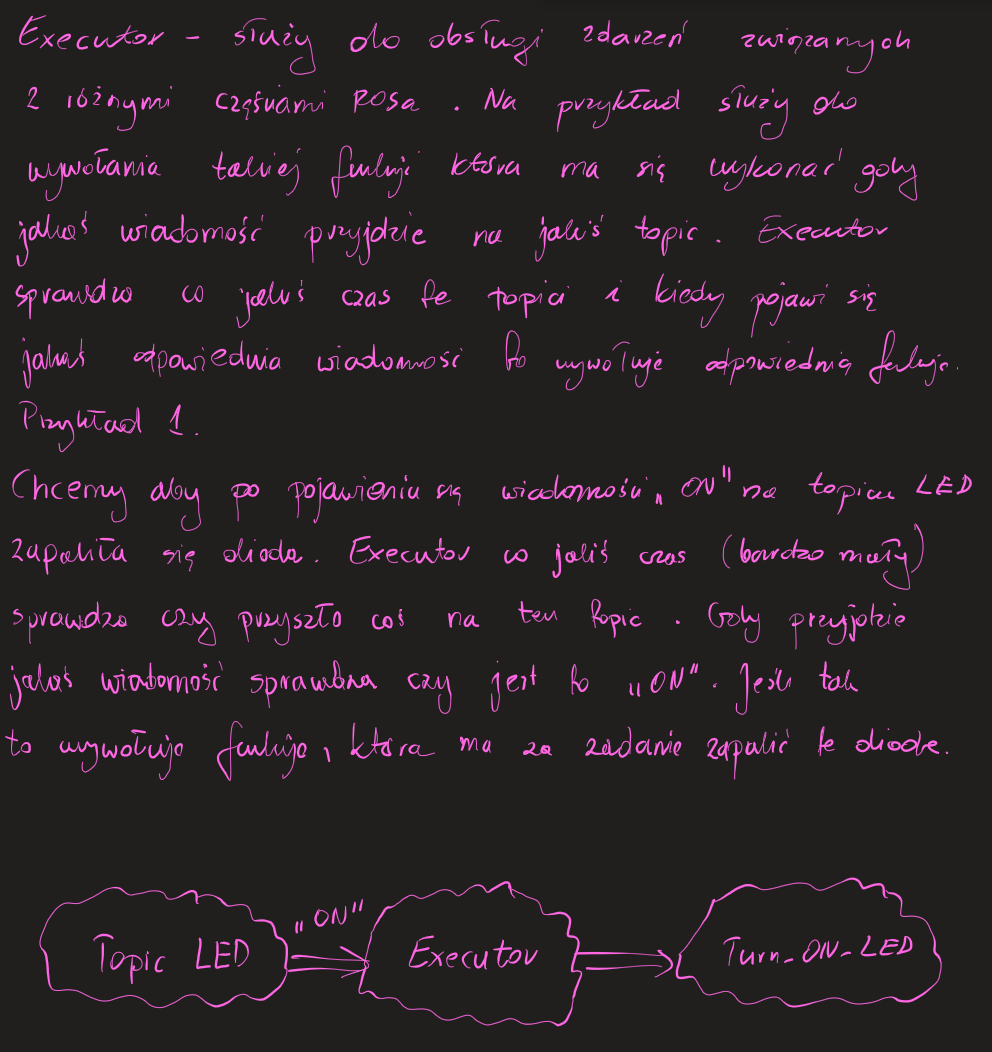 Executor - służy do obsługi zdarzeń związanych
z różnymi częściami ROSa. Na przykład służy do
wywołania takiej funkcji która ma się wykonać gdy
jakaś wiadomość przyjdzie na jakiś topic. Executor
sprawdza co jakiś czas te topici i kiedy pojawi się
jakaś odpowiednia wiadomność to wywołuje odpowiednią funkcję.
Przykład 1.
Chcemy aby po pojawieniu się wiadomości „ON" na topicu LED
zapaliła się dioda. Executor co jakiś czas (bardzo mały)
sprawdza czy przyszło coś na ten topic. Gdy przyjdzie
jakaś wiadomość sprawdza czy jest to „ON". Jeśli tak
to wywołuje funkcje, która ma za zadanie zapalić te diode.
„ON"
Topic LED
Executor
Turn_ON_LED